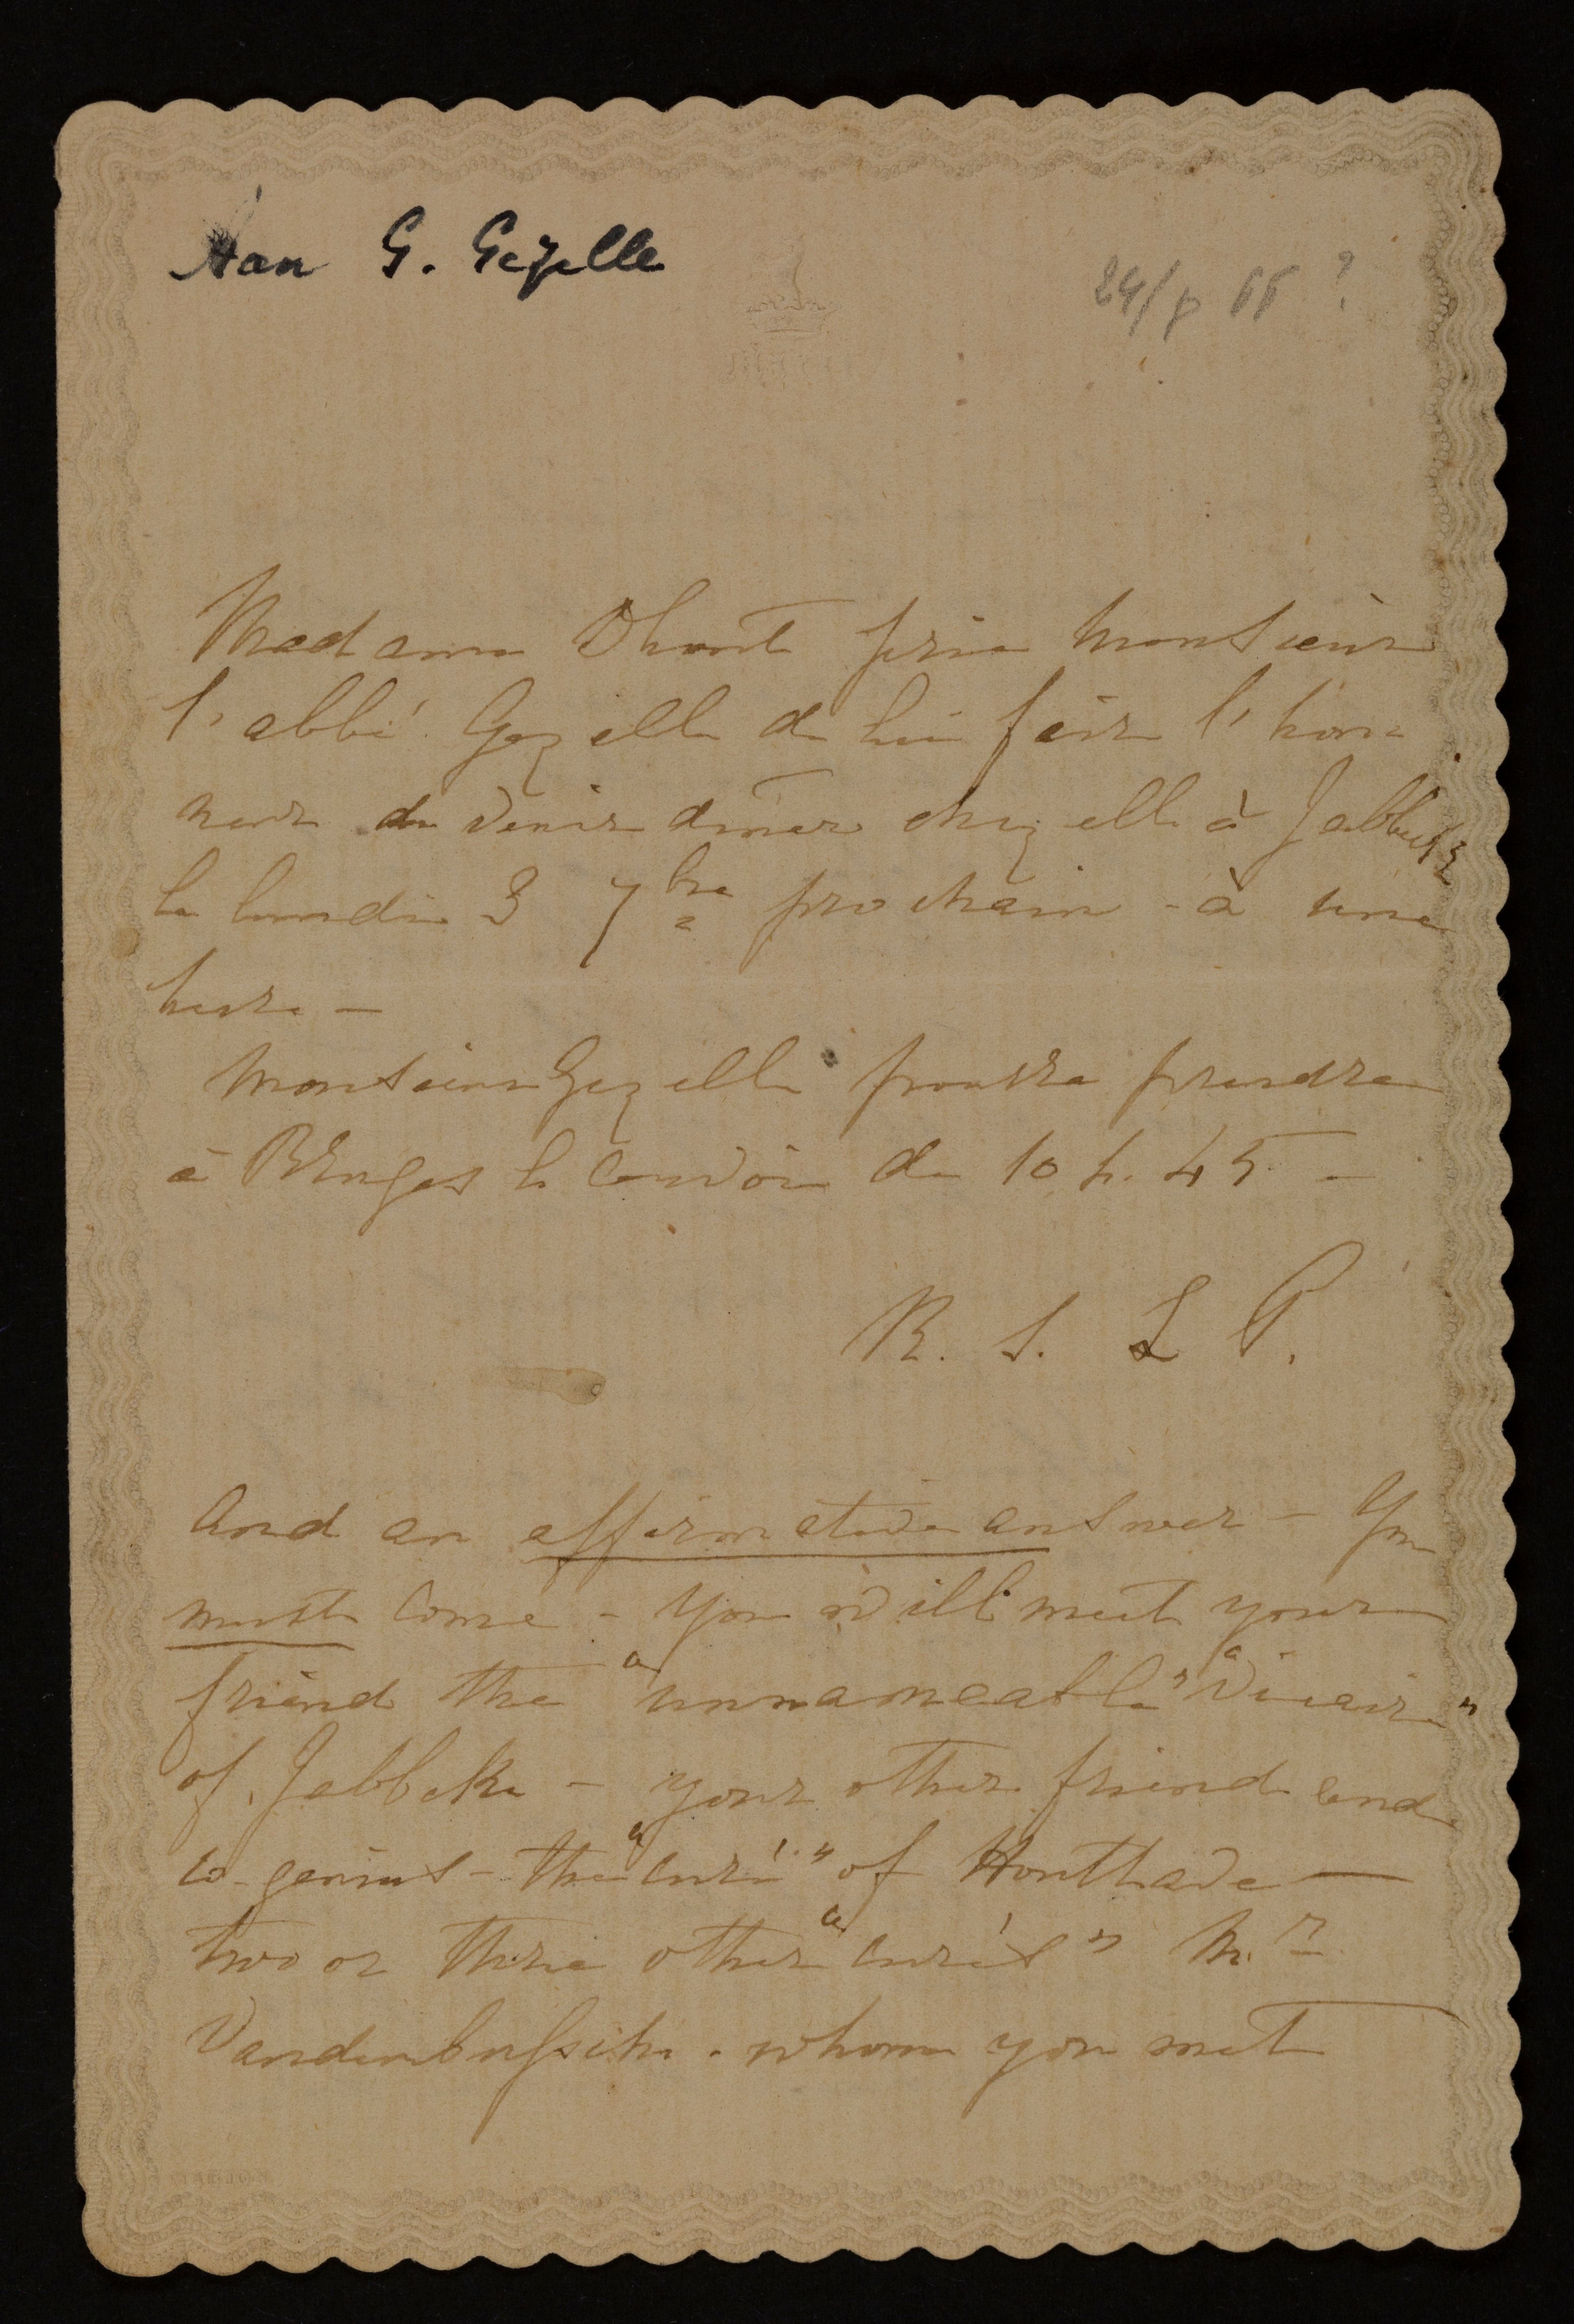 Aan G. Gezelle
24/8 66 ?
Madame Dhont prie Monsieur
l'abbé Gezelle de lui faire l'hon
neur de venir diner chez elle à Jabbeke
le lundi 3 7bre prochain - à une
heure -
Monsieur Gezelle pourra prendre
à Bruges le convoi de 10 h. 45 -
R. S. L P.
And an affirmative answer - You
must come - You will meet your
friend the "unnameable" "Vicaire"
of Jabbeke - your other friend and
co-genius - the "curé" of Houthave -
two or three other "curés" Mr
Vandenbussche. whom you met